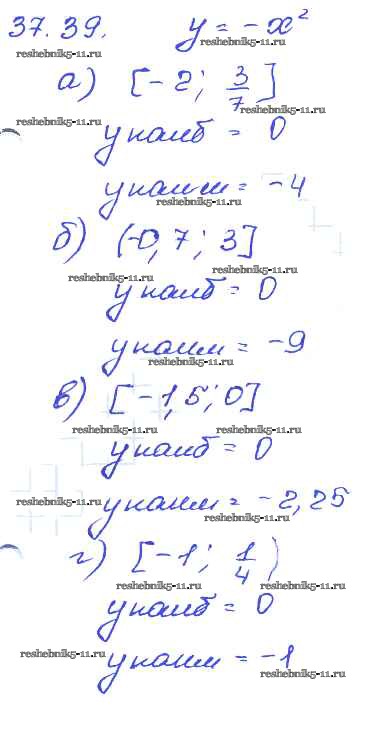 37.39. y = -x²
reshebnik5-11.ru
reshebnik5-11.ru
а) [-2; 3/7]
reshebnik5-11.ru reshebnik5-11.ru
y наиб = 0
y наим = -4
reshebnik5-11.ru
б) (-0,7; 3]
reshebnik5-11.ru reshebnik5-11.ru
y наиб = 0
y наим = -9
reshebnik5-11.ru
в) [-1,5; 0]
reshebnik5-11.ru reshebnik5-11.ru
y наиб = 0
reshebnik5-11.ru y наим = -2,25
reshebnik5-11.ru
г) [-1; 1/4)
reshebnik5-11.ru reshebnik5-11.ru
y наиб = 0
reshebnik5-11.ru y наим = -1
reshebnik5-11.ru